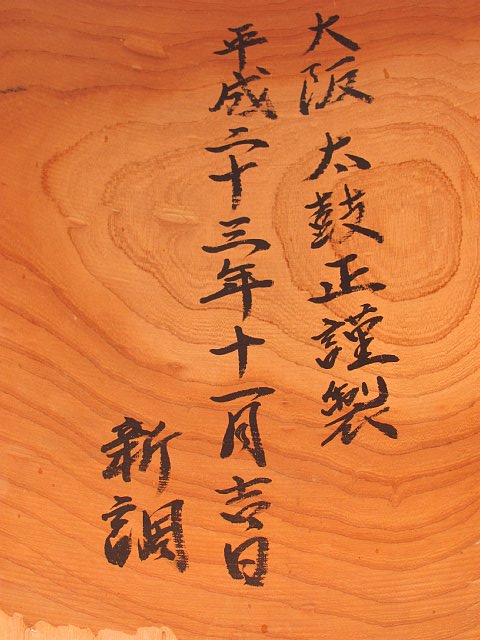 大阪 太鼓正謹製
平成二十三年十一月吉日
新調